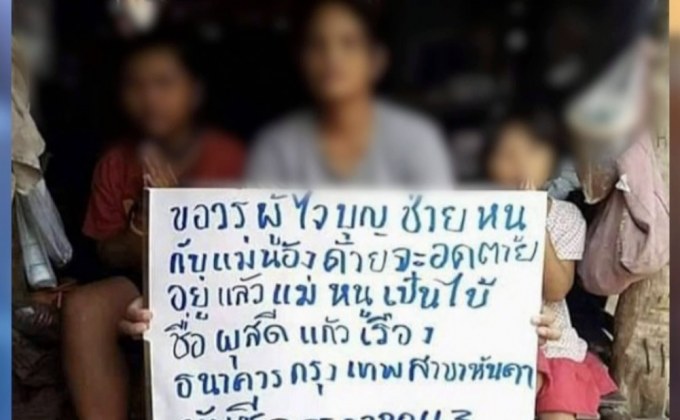 ขอวรผู้ใจบุญช่ายหนู
กับแม่น้องด้วยจะอดตาย
อยู่แล้วแม่หนูเป็นไบ้
ชื่อผุสดีแก้วเรือง
ธนาคารกรุงเทพสาขาหันคา